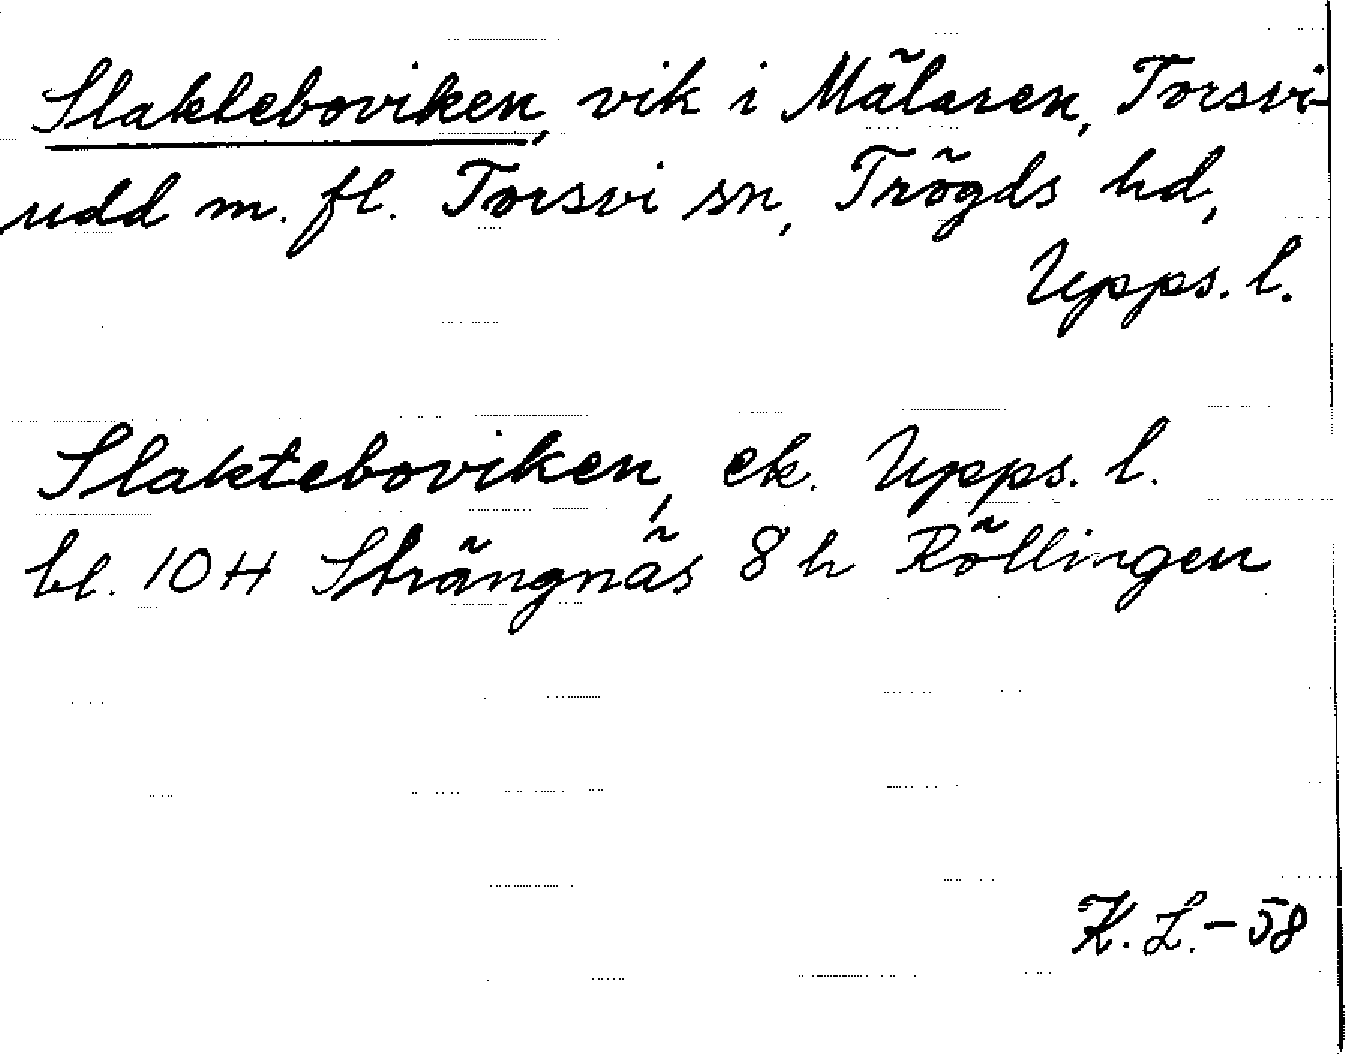 Slakteboviken, vik i Mälaren, Torsvi-
udd m. fl. Torsvi sn, Trögds hd,
Upps. l.
Slakteboviken, ek. Upps. l.
bl. 10 H Strängnäs 8 h Röllingen
K. L. - 58